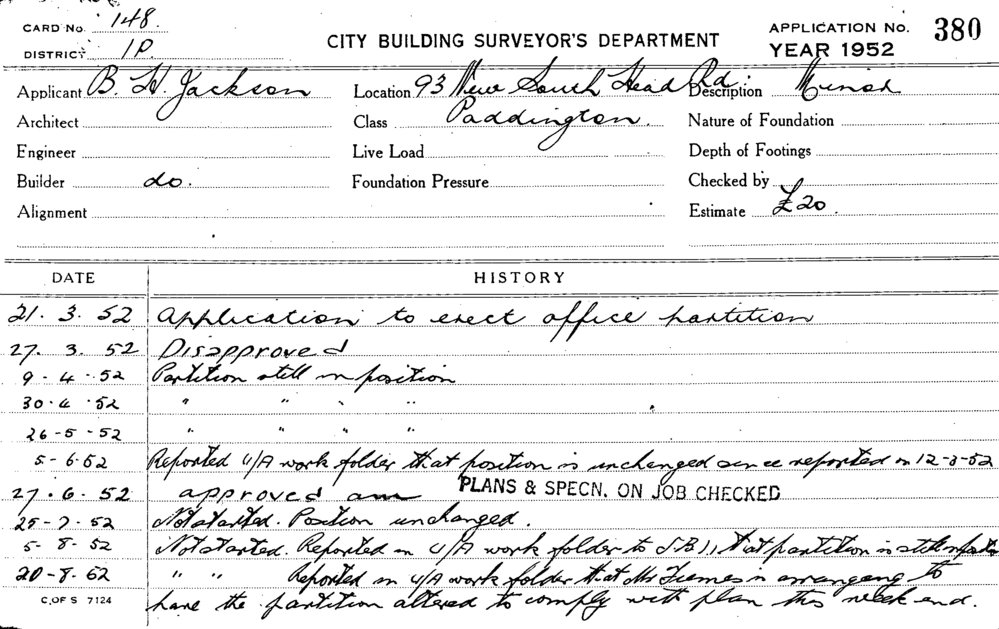 CARD No. 148.
DISTRICT 1P.
CITY BUILDING SURVEYOR'S DEPARTMENT
APPLICATION No. 380
YEAR 1952
Applicant B. H. Jackson Location 93 New South Head Rd. Description Minor
Architect Class Paddington. Nature of Foundation
Engineer Live Load Depth of Footings
Builder do. Foundation Pressure Checked by
Alignment Estimate £20.
DATE HISTORY
21. 3. 52 Application to erect office partition
27. 3. 52 Disapproved
9 - 4 - 52 Partition still in position
30 - 4 - 52 " " " "
26 - 5 - 52 " " " "
5 - 6. 52 Reported U/A work folder that position is unchanged since reported on 12-3-52
27. 6. 52 approved PLANS & SPECN. ON JOB CHECKED
25 - 7. 52 Not started. Position unchanged.
5 - 8. 52 Not started. Reported in U/A work folder to that partition is still in
20 - 8. 52 " " Reported in U/A work folder that Mr is arranging to
C. OF S 7124 have the partition altered to comply with plan this week end.